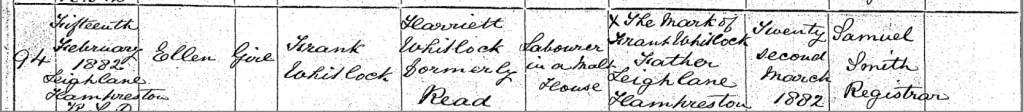 94
Fifteenth
February
1882
Leigh Lane
Hampreston
R.S.D
Ellen
Girl
Frank
Whitlock
Harriett
Whitlock
formerly
Read
Labourer
in a Malt
House
X The Mark of
Frank Whitlock
Father
Leigh Lane
Hampreston
Twenty
second
March
1882
Samuel
Smith
Registrar